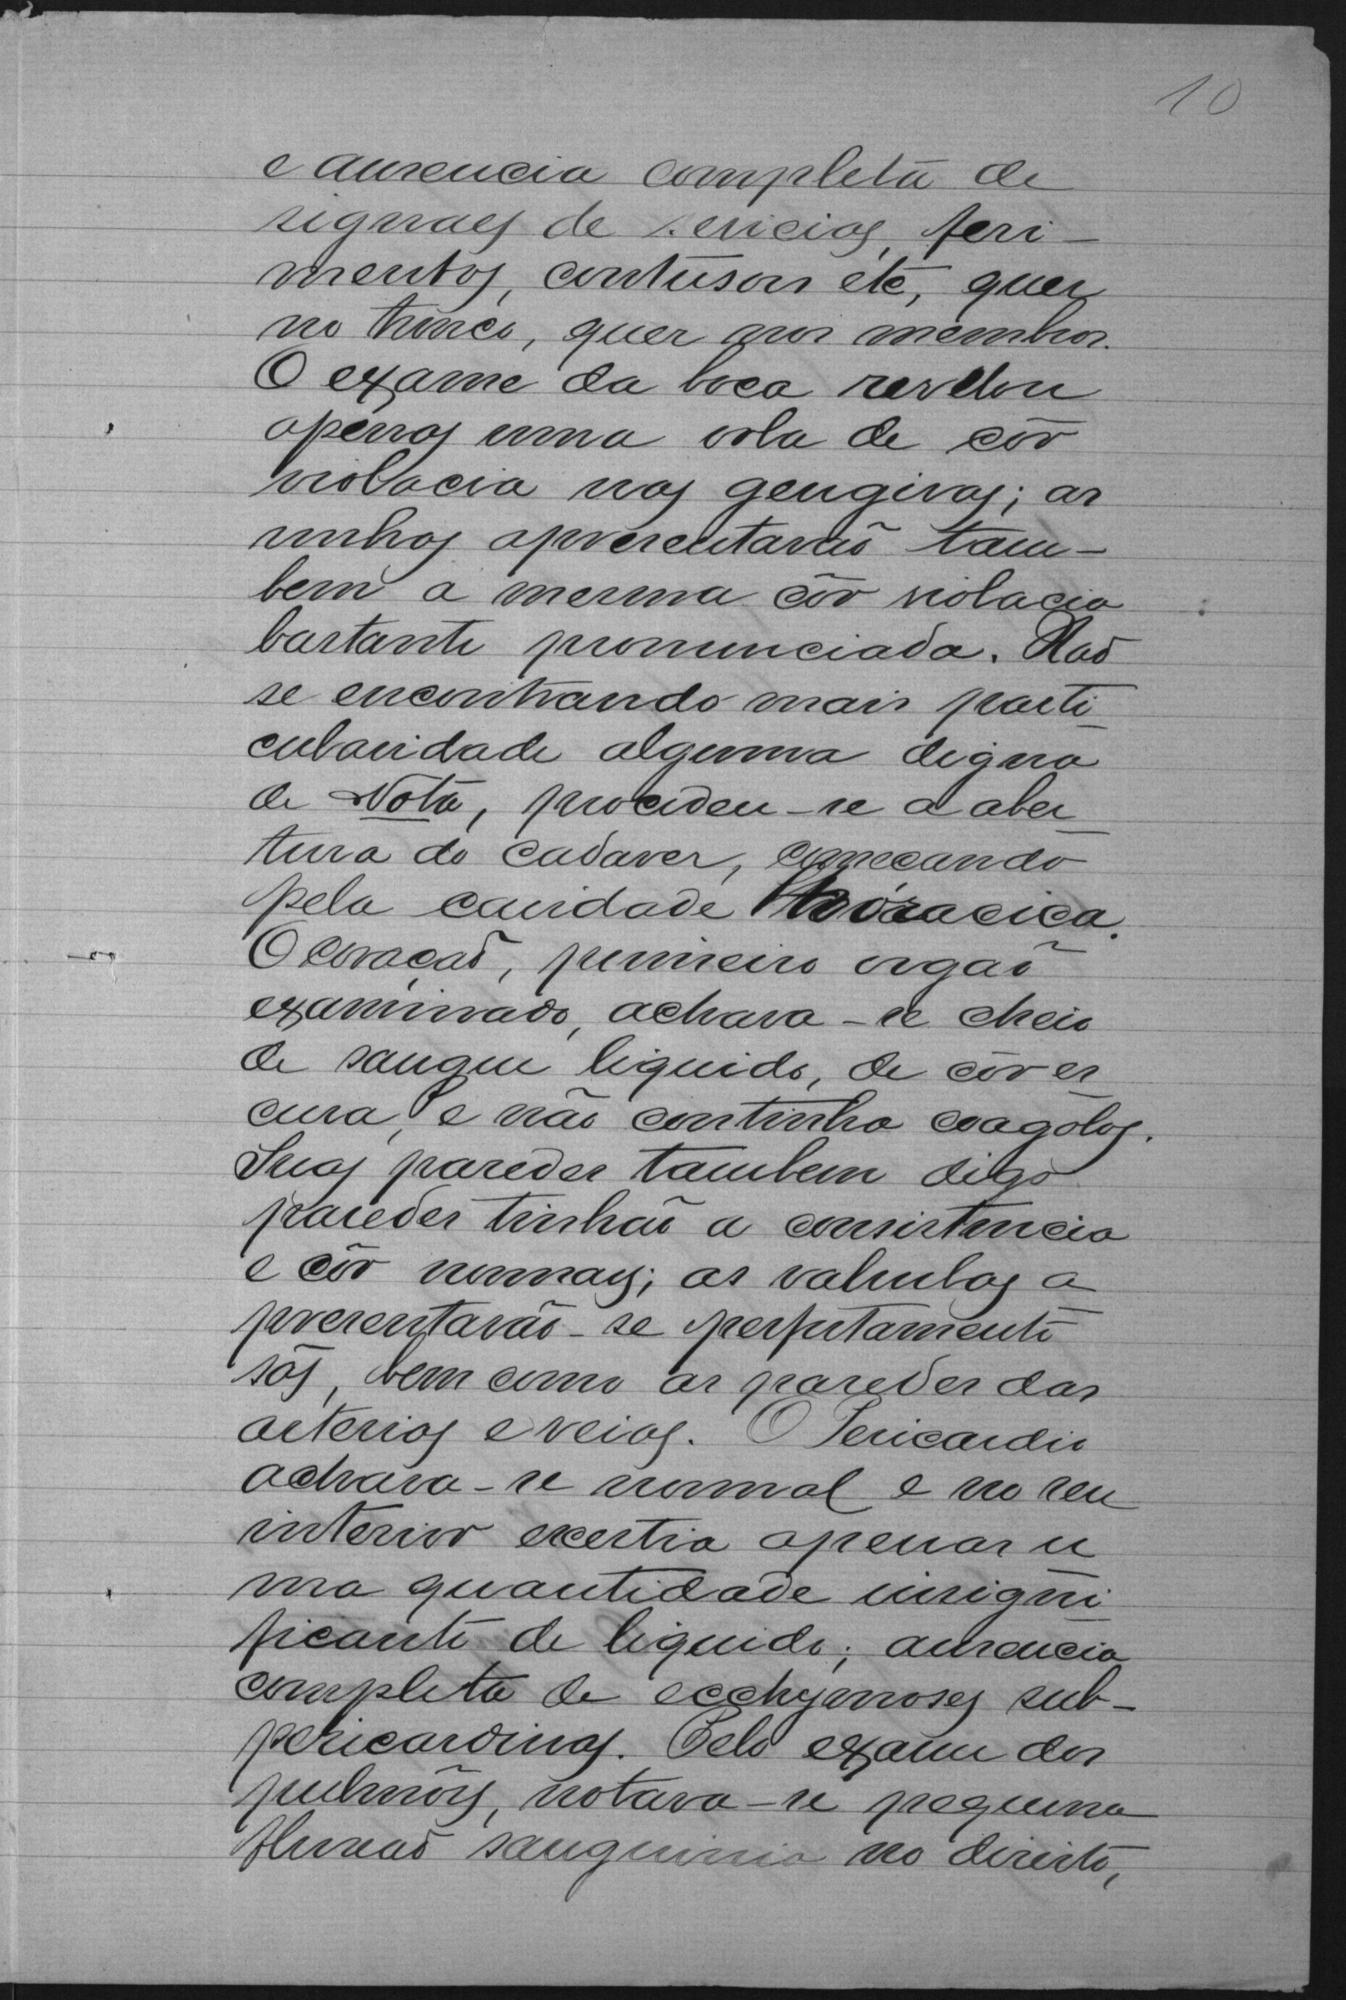 10
e ausencia completa de
signaes de sevicias, feri-
mentos, contusões etc, quer
no tronco, quer nos membros.
O exame da boca revelou
apenas uma orla de côr
violacia nas gengivas; as
unhas apresentavão tam-
bem a mesma côr violacia
bastante pronunciada. Não
se encontrando mais parti
cularidade alguma digna
de Nota, procedeu-se a aber
tura do cadaver, começando
pela cavidade thoracica.
O coração, primeiro orgaõ
examinado, achava-se cheio
de sangue liquido, de côr es
cura, e não continha coagolos.
Suas paredes tambem digo
paredes tinhão a consistencia
e côr normaes; as valvulas a
presentavão-se perfeitamente
sãs, bem como as paredes das
arterias e veias. O Pericardio
achava-se normal e no seu
interior exestia apenas u
ma quantidade insigni
ficante de liquido; ausencia
completa de ecchymoses sub-
pericardinas. Pelo exame dos
pulmões, notava-se pequena
fluxaõ sanguinia no direito,